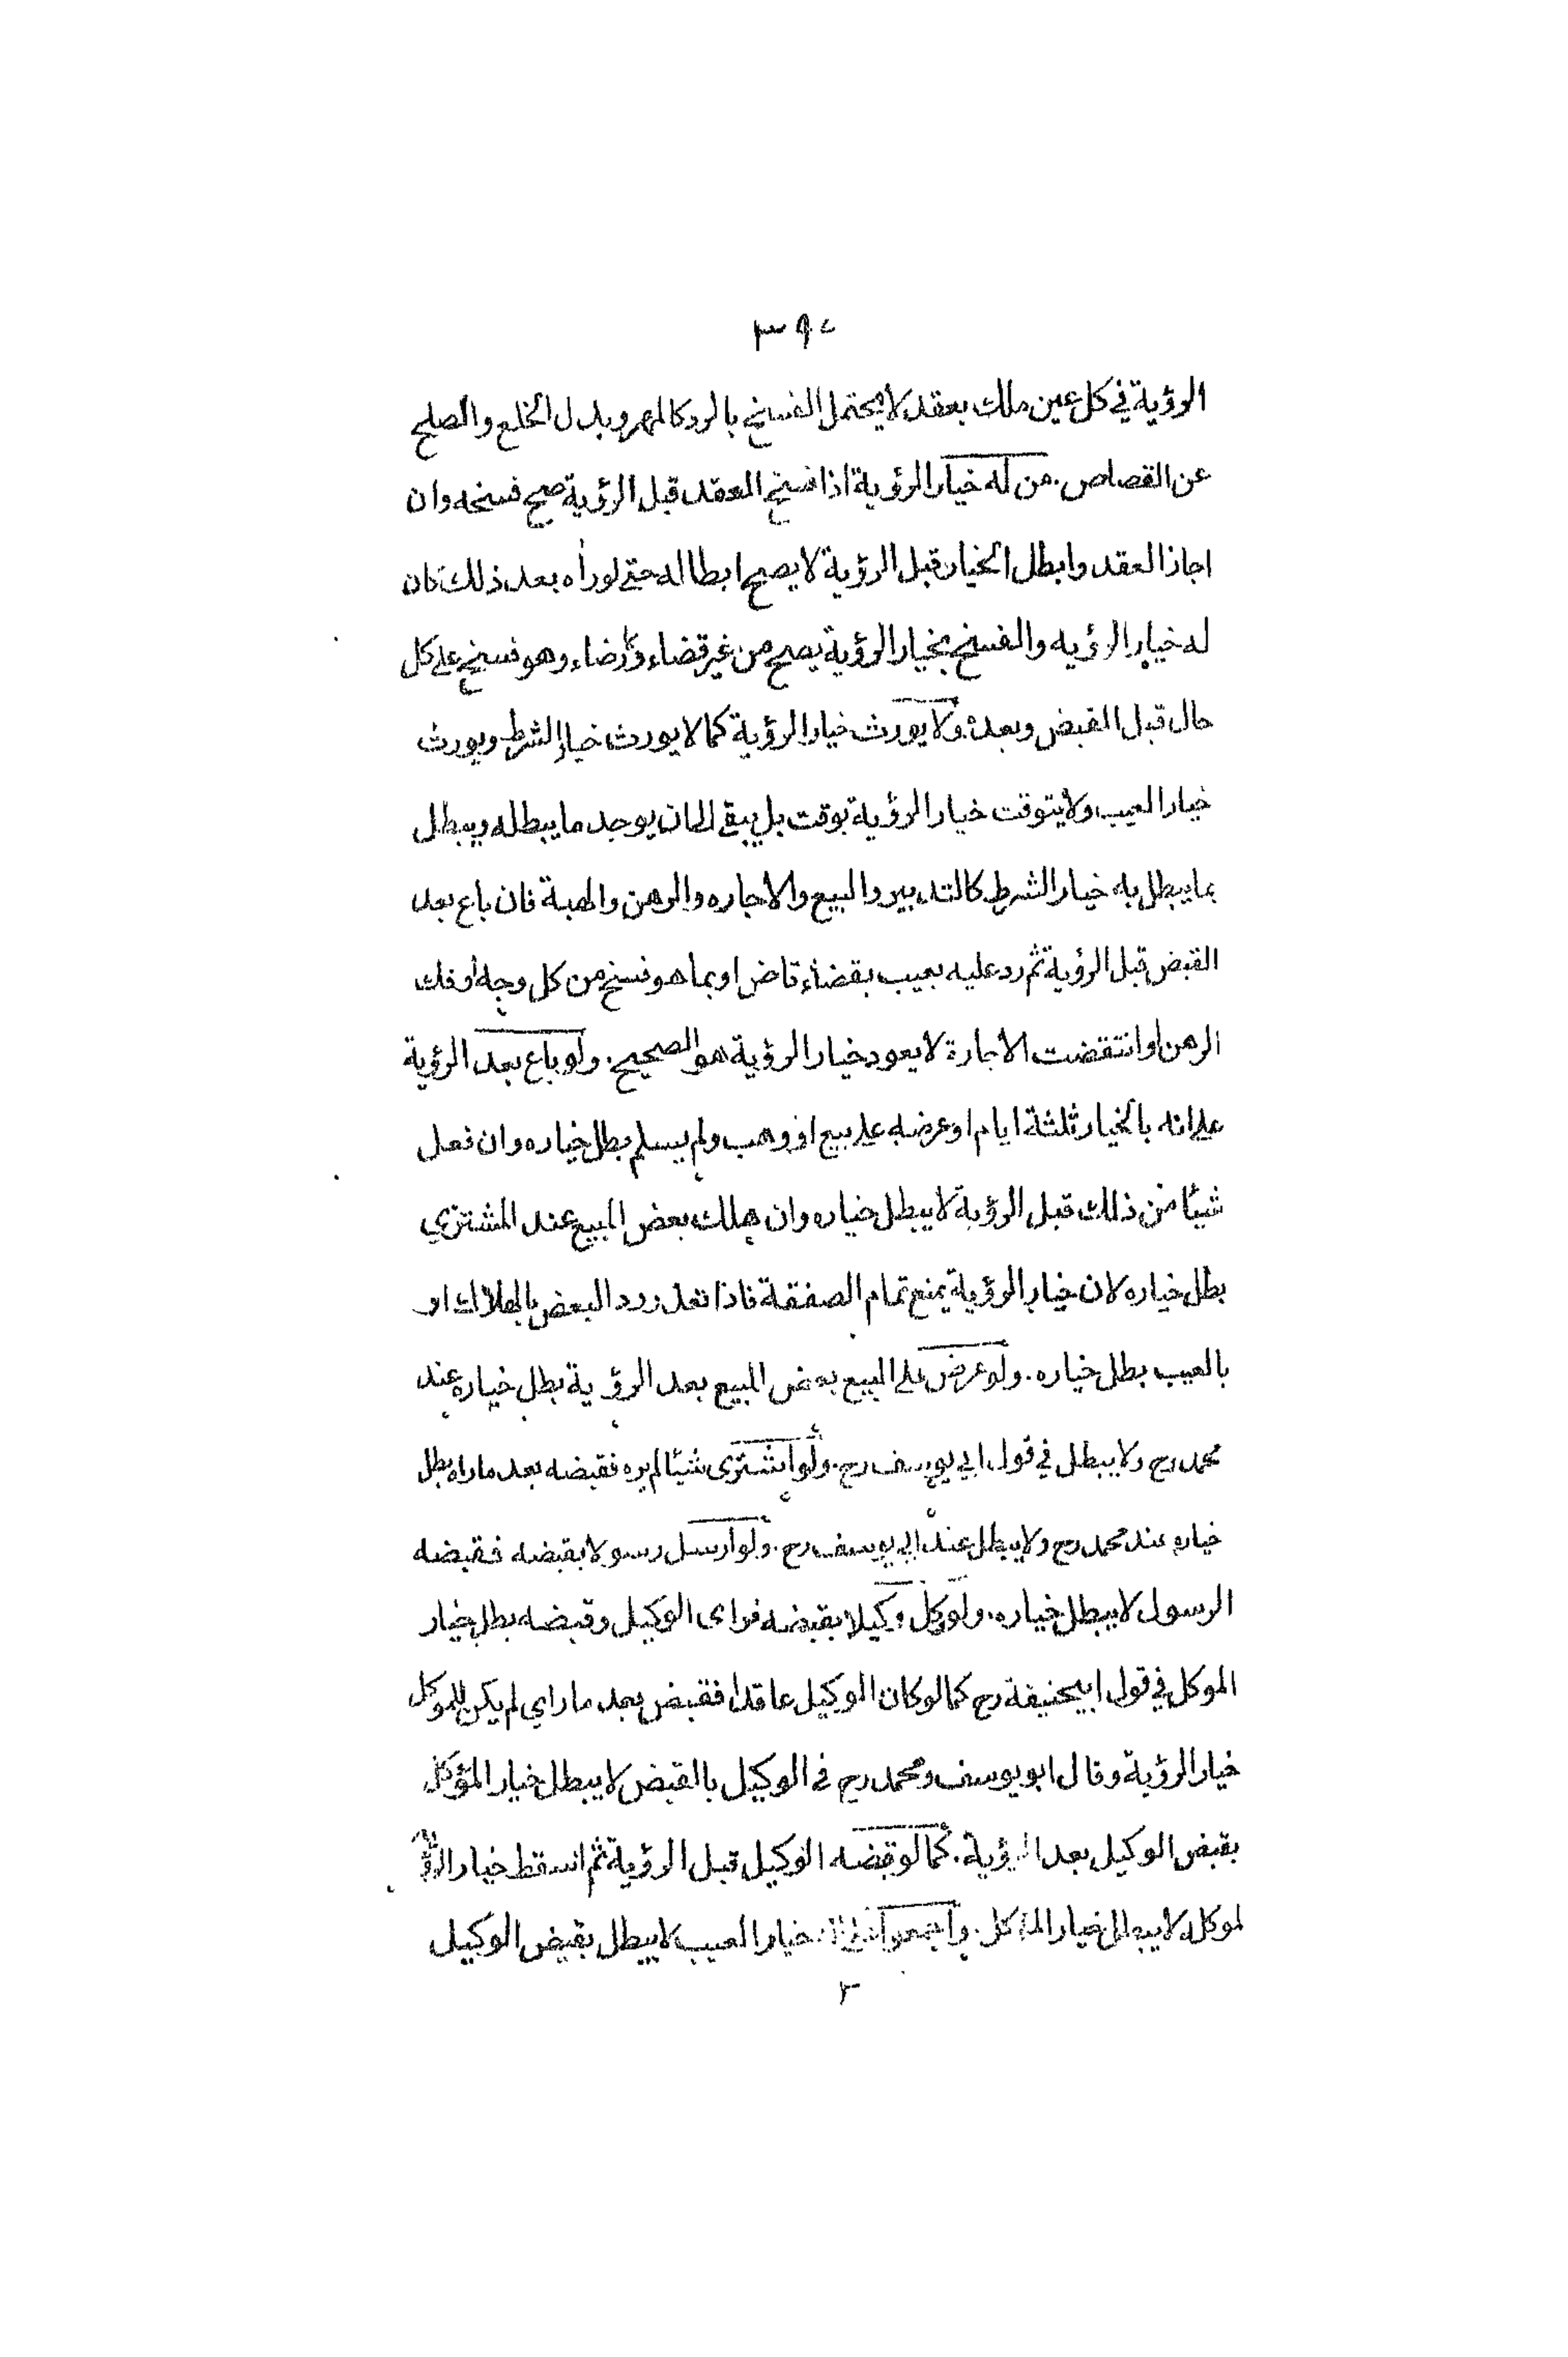 الرؤية في كل عين ملك بعقد لا يحتمل الفسخ بالرد كالمهر وبدل الخلع والصلح
عن القصاص. من له خيار الرؤية اذا فسخ العقد قبل الرؤية صح فسخه وان
اجاز العقد وابطل الخيار قبل الرؤية لا يصح ابطاله حتى لو رأه بعد ذلك كان
له خيار الرؤيه والفسخ بخيار الرؤية يصح من غير قضاء ولا رضاء وهو فسخ على كل
حال قبل القبض وبعده. ولا يورث خيار الرؤية كما لا يورث خيار الشرط ويورث
خيار العيب ولا يتوقت خيار الرؤية بوقت بل يبقى الى ان يوجد ما يبطله ويبطل
بما يبطل به خيار الشرط كالتدبير والبيع والاجاره والرهن والهبة فان باع بعد
القبض قبل الرؤية ثم رد عليه بعيب بقضاء قاض او بما هو فسخ من كل وجه او فك
الرهن او انتقضت الاجارة لا يعود خيار الرؤية هو الصحيح. ولو باع بعد الرؤية
على انه بالخيار ثلثة ايام او عرضه على بيع او وهب ولم يسلم بطل خياره وان فعل
شيئا من ذلك قبل الرؤية لا يبطل خياره وان هلك بعض المبيع عند المشتري
بطل خياره لان خيار الرؤية يمنع تمام الصفقة فاذا تعذر رد البعض بالهلاك او
بالعيب بطل خياره. ولو عرض على البيع بعض المبيع بعد الرؤية بطل خياره عند
محمد رح ولا يبطل في قول ابي يوسف رح. ولو اشترى شيئا لم يره فقبضه بعد ما راه بطل
خياره عند محمد رح ولا يبطل عند ابي يوسف رح. ولو ارسل رسولا بقبضه فقبضه
الرسول لا يبطل خياره. ولو وكل وكيلا بقبضه فراى الوكيل وقبضه بطل خيار
الموكل في قول ابيحنيفة رح كما لو كان الوكيل عاقدا فقبض بعد ما راى لم يكن للموكل
خيار الرؤية وقال ابو يوسف ومحمد رح في الوكيل بالقبض لا يبطل خيار المؤكل
بقبض الوكيل بعد الرؤية. كما لو قبضه الوكيل قبل الرؤية ثم اسقط خيار الرؤية
لموكل لا يبطل خيار الموكل. واجمعوا على ان خيار العيب لا يبطل بقبض الوكيل